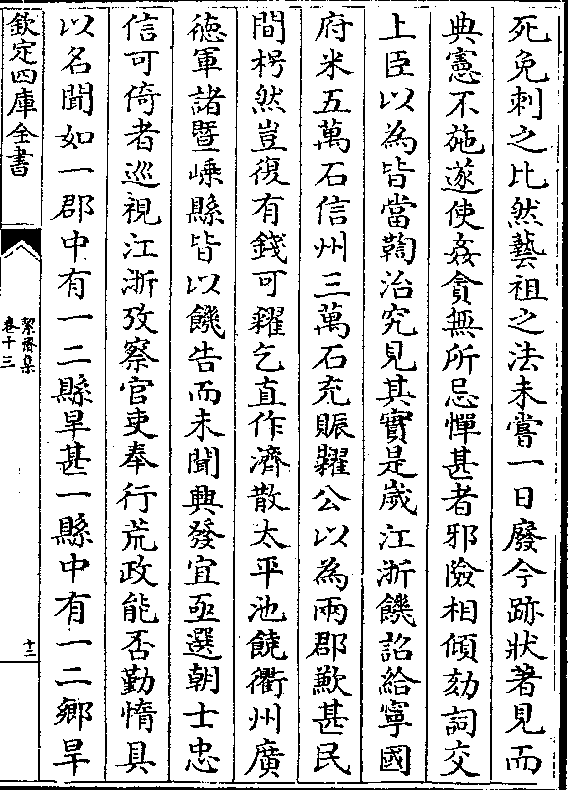 死免刺之比然藝祖之法未嘗一日廢今跡狀著見而
典憲不施遂使姦貪無所忌憚甚者邪險相傾劾詞交
上臣以為皆當鞫治究見其實是歲江浙饑詔給寧國
府米五萬石信州三萬石充賑糶公以為兩郡歉甚民
間枵然豈復有錢可糴乞直作濟散太平池饒衢州廣
徳軍諸暨嵊縣皆以饑告而未聞興發宜亟選朝士忠
信可倚者巡視江浙攷察官吏奉行荒政能否勤惰具
以名聞如一郡中有一二縣旱甚一縣中有一二鄉旱
欽定四庫全書
絜齋集
卷十三
十三